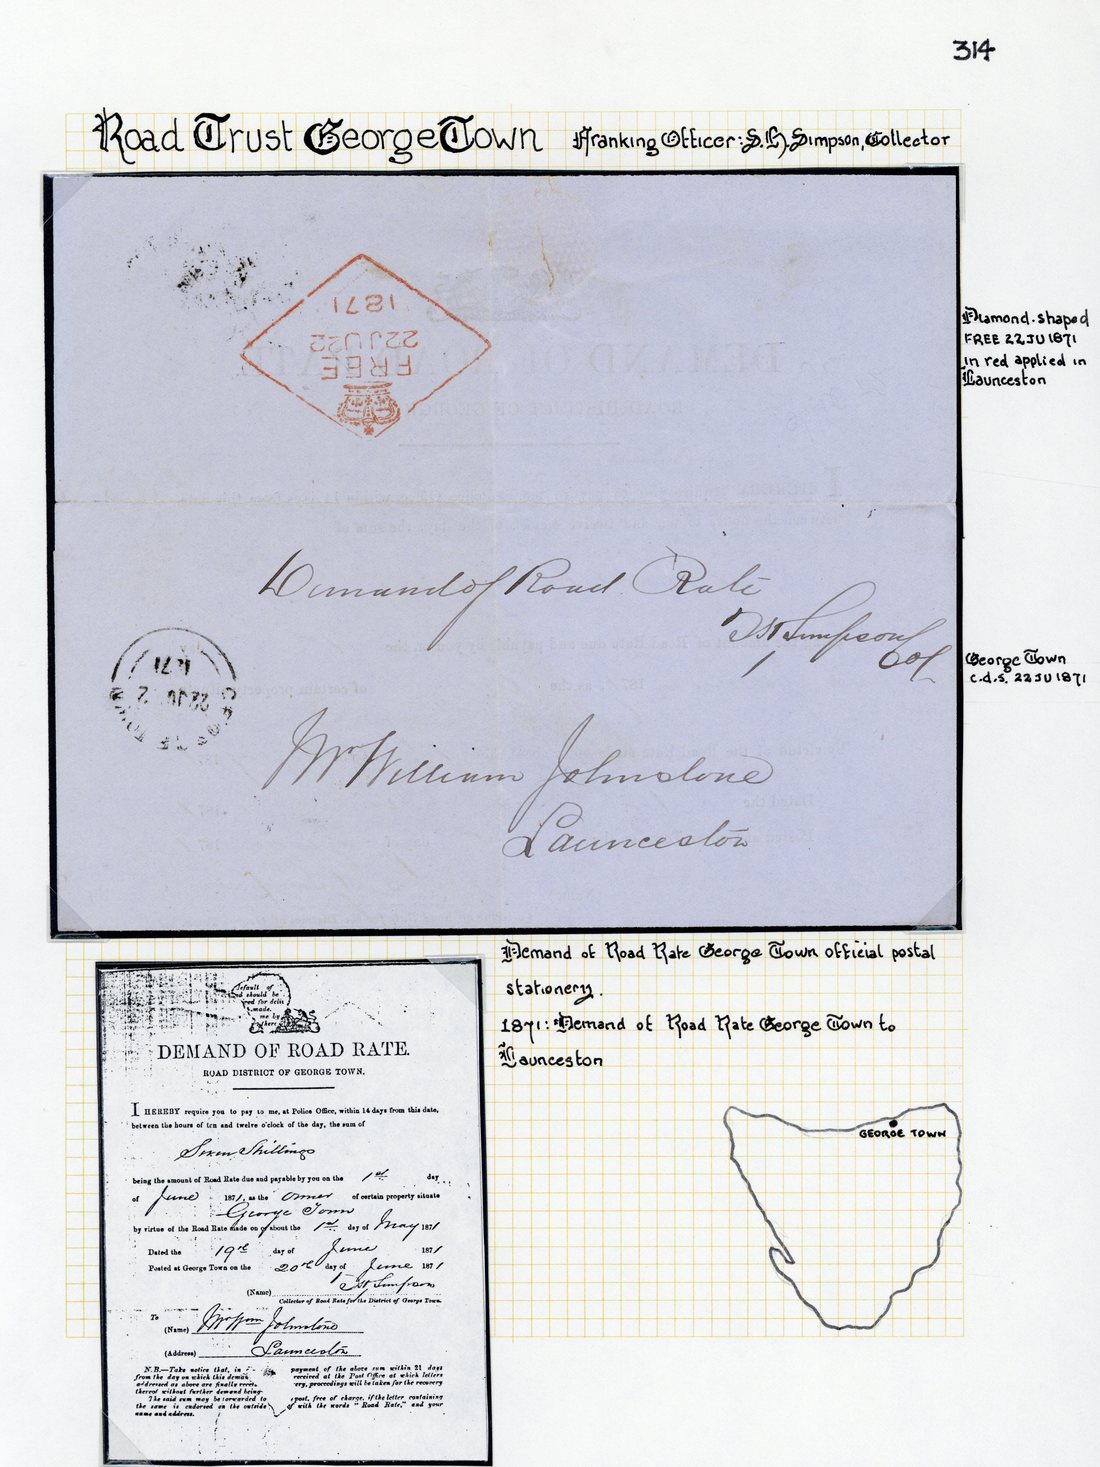 314
Road Trust George Town Franking Officer: S.H. Simpson, Collector
1871
22JU22
FREE
Diamond-shaped
FREE 22 JU 1871
in red applied in
Launceston
Demand of Road Rate
Simpson
Col
George Town
c.d.s. 22 JU 1871
71
22 JU 2
Mr William Johnstone
Launceston
Demand of Road Rate George Town official postal
stationery.
1871: Demand of Road Rate George Town to
Launceston
GEORGE TOWN
default of
should be
for deliv
made.
me by
there
DEMAND OF ROAD RATE.
ROAD DISTRICT OF GEORGE TOWN.
I HEREBY require you to pay to me, at Police Office, within 14 days from this date,
between the hours of ten and twelve o'clock of the day, the sum of
Seven Shillings
being the amount of Road Rate due and payable by you on the 1st day
of June 1871, as the owner of certain property situate
George Town
by virtue of the Road Rate made on or about the 1st day of May 1871
Dated the 19th day of June 1871
Posted at George Town on the 20th day of June 1871
(Name) Simpson
Collector of Road Rate for the District of George Town.
To
(Name) Mr Wm Johnstone
(Address) Launceston
N.B.—Take notice that, in payment of the above sum within 21 days
from the day on which this deman received at the Post Office at which letters
addressed as above are finally recei ery, proceedings will be taken for the recovery
thereof without further demand being
The said sum may be forwarded to post, free of charge, if the letter containing
the same is endorsed on the outside of with the words "Road Rate," and your
name and address.